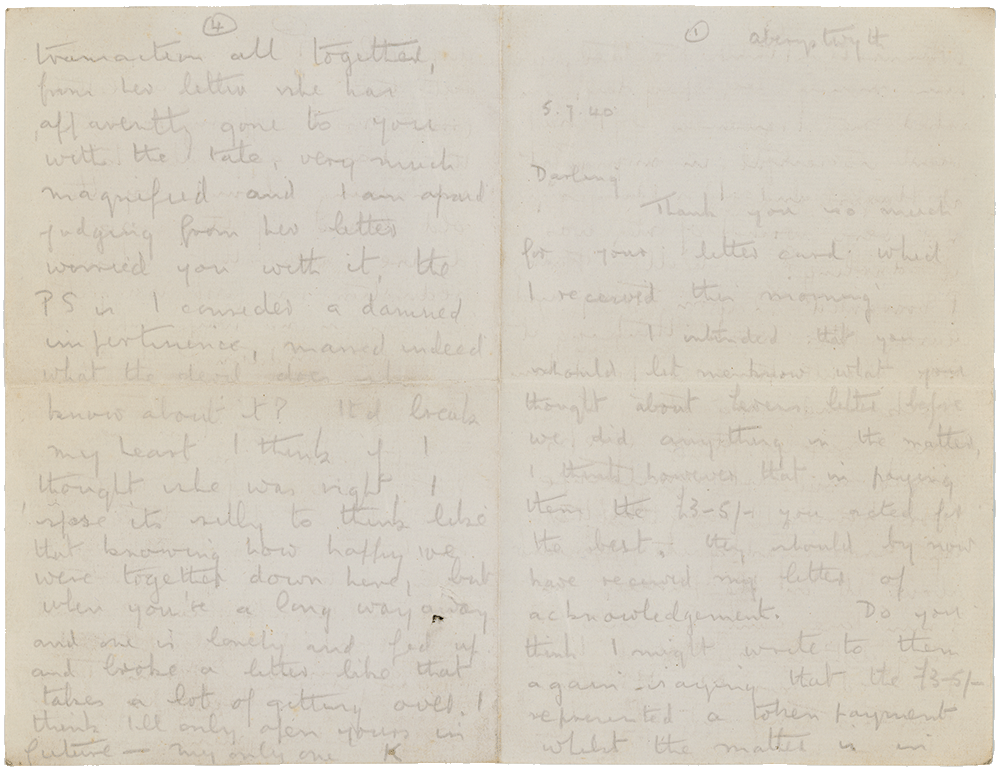 ④
transaction all together,
from her letter she has
apparently gone to you
with the tale, very much
magnified and I am afraid
judging from her letter
worried you with it, the
PS is I consider a damned
impertinence, married indeed
what the devil does she
know about it? It'd break
my heart I think if I
thought she was right, I
spose its silly to think like
that knowing how happy we
were together down here, but
when you're a long way away
and one is lonely and fed up
and broke a letter like that
takes a lot of getting over. I
think I'll only open yours in
future — my only one
①
5.7.40
Darling
Thank you so much
for your letter card which
I received this morning
I intended that you
should let me know what you
thought about letter before
we did anything in the matter,
I think however that in paying
them the £3-5/- you acted for
the best, they should by now
have received my letter of
acknowledgement. Do you
think I might write to them
again saying that the £3-5/-
represented a token payment
whilst the matter is in